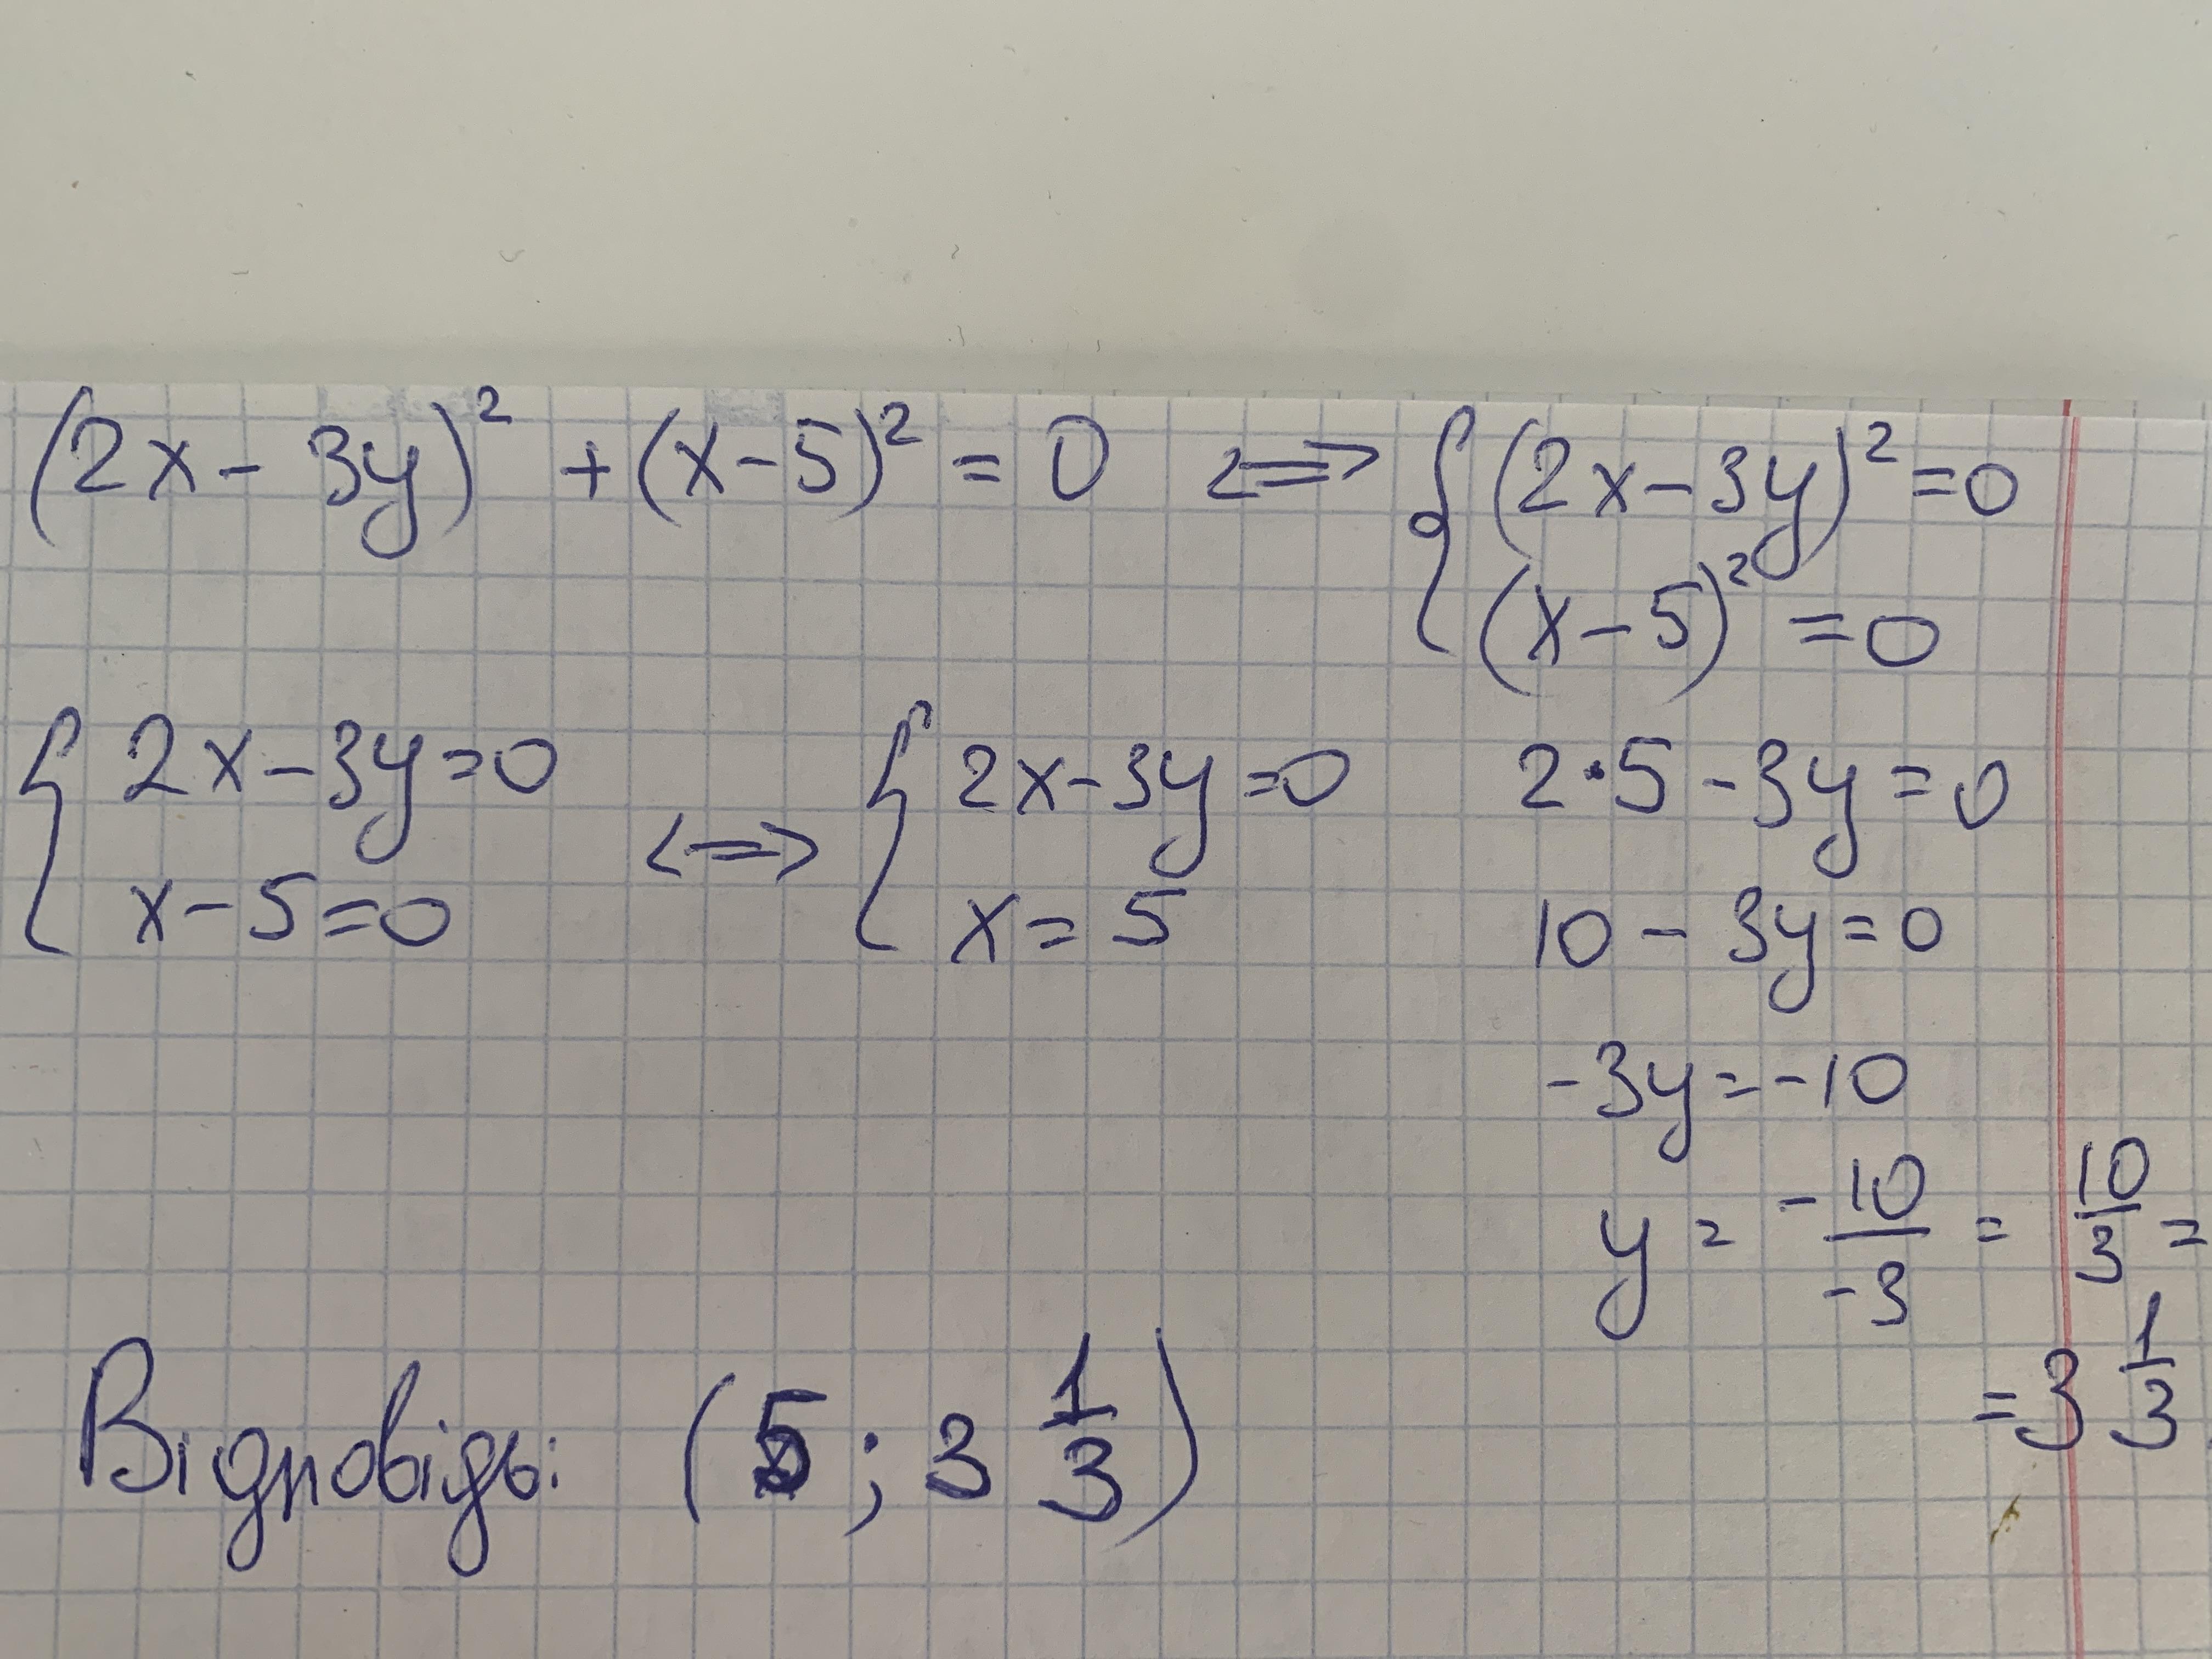 (2x - 3y)² + (x-5)² = 0 <=> { (2x-3y)² = 0
(x-5)² = 0
{ 2x-3y=0 <=> { 2x-3y=0 2·5-3y=0
x-5=0 x=5 10-3y=0
-3y=-10
y = -10/-3 = 10/3 =
= 3 1/3
Відповідь: (5; 3 1/3)